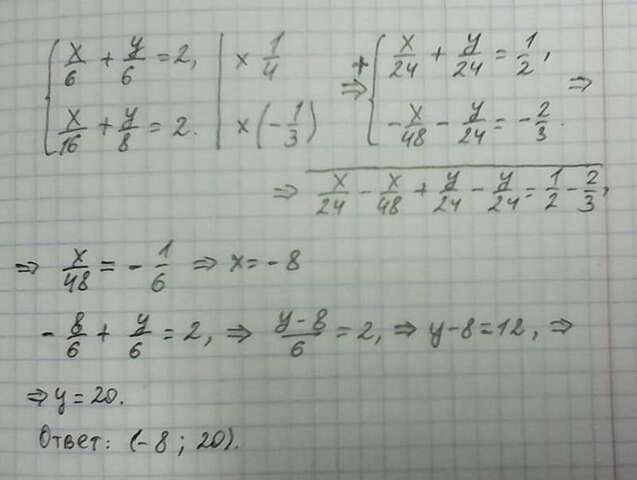 { x/6 + y/6 = 2, | × 1/4 + ⇒ { x/24 + y/24 = 1/2, ⇒
x/16 + y/8 = 2. | × (-1/3) -x/48 - y/24 = -2/3.
⇒ x/24 - x/48 + y/24 - y/24 = 1/2 - 2/3,
⇒ x/48 = -1/6 ⇒ x = -8
-8/6 + y/6 = 2, ⇒ y-8/6 = 2, ⇒ y-8=12, ⇒
⇒ y = 20.
Ответ: (-8 ; 20).